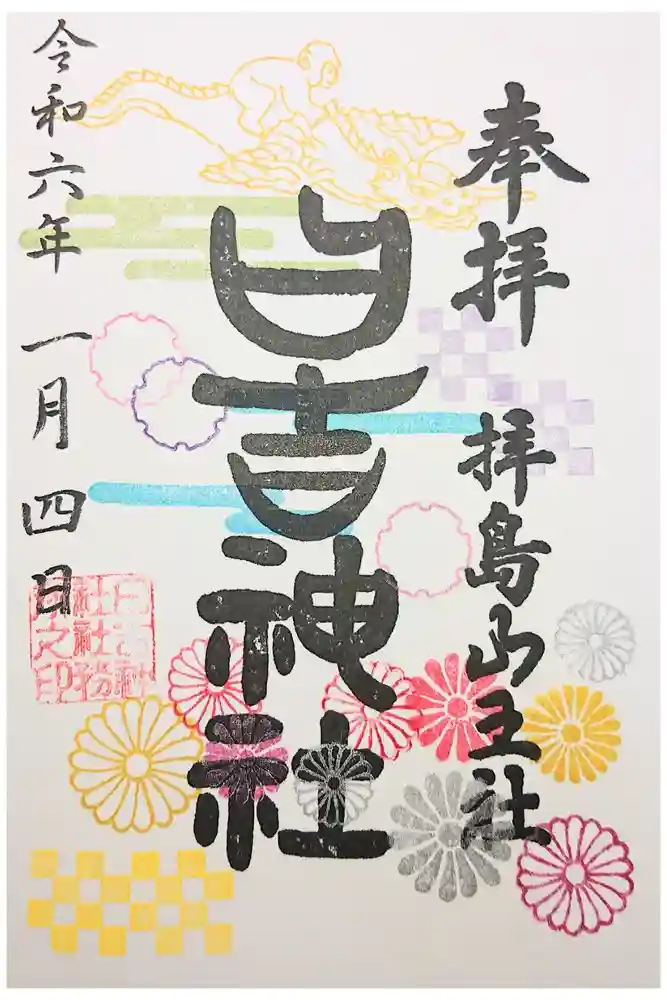 奉拝 拝島山王社
日吉神社
令和六年 一月四日
日吉神
社社務
所之印